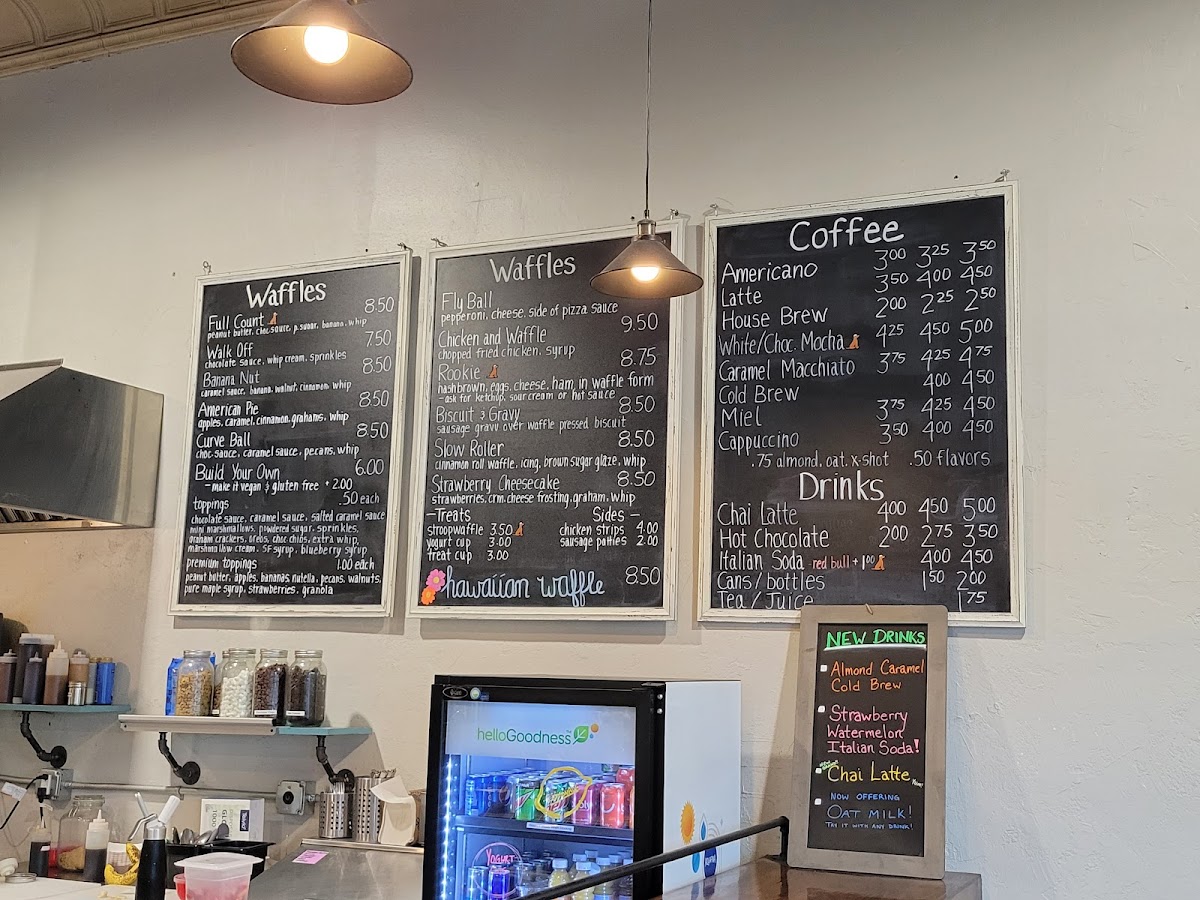 Waffles
Full Count 8.50
peanut butter, choc sauce, p. sugar, banana, whip
Walk Off 7.50
chocolate sauce, whip cream, sprinkles
Banana Nut 8.50
caramel sauce, banana, walnut, cinnamon, whip
American Pie 8.50
apples, caramel, cinnamon, grahams, whip
Curve Ball 8.50
choc sauce, caramel sauce, pecans, whip
Build Your Own 6.00
- make it vegan & gluten free + 2.00
toppings .50 each
chocolate sauce, caramel sauce, salted caramel sauce
mini marshmallows, powdered sugar, sprinkles,
graham crackers, oreos, choc chips, extra whip,
marshmallow cream, SF syrup, blueberry syrup
premium toppings 1.00 each
peanut butter, apples, bananas, nutella, pecans, walnuts,
pure maple syrup, strawberries, granola
Waffles
Fly Ball
pepperoni, cheese, side of pizza sauce
Chicken and Waffle 9.50
chopped fried chicken, syrup
Rookie 8.75
hashbrown, eggs, cheese, ham, in waffle form
- ask for ketchup, sour cream or hot sauce
Biscuit & Gravy 8.50
sausage gravy over waffle pressed biscuit
Slow Roller 8.50
cinnamon roll waffle, icing, brown sugar glaze, whip
Strawberry Cheesecake 8.50
strawberries, crm. cheese frosting, graham, whip
- Treats
stroopwaffle 3.50
yogurt cup 3.00
treat cup 3.00
Sides -
chicken strips 4.00
sausage patties 2.00
hawaiian waffle 8.50
Coffee
Americano 3.00 3.25 3.50
Latte 3.50 4.00 4.50
House Brew 2.00 2.25 2.50
White/Choc. Mocha 4.25 4.50 5.00
Caramel Macchiato 3.75 4.25 4.75
Cold Brew 4.00 4.50
Miel 3.75 4.25 4.50
Cappuccino 3.50 4.00 4.50
.75 almond, oat, x-shot .50 flavors
Drinks
Chai Latte 4.00 4.50 5.00
Hot Chocolate 2.00 2.75 3.50
Italian Soda - red bull + 1.00 4.00 4.50
Cans/bottles 1.50 2.00
Tea/Juice 1.75
NEW DRINKS
Almond Caramel
Cold Brew
Strawberry
Watermelon
Italian Soda!
Chai Latte
NOW OFFERING
OAT MILK!
TRY IT WITH ANY DRINK!
helloGoodness
YOGURT